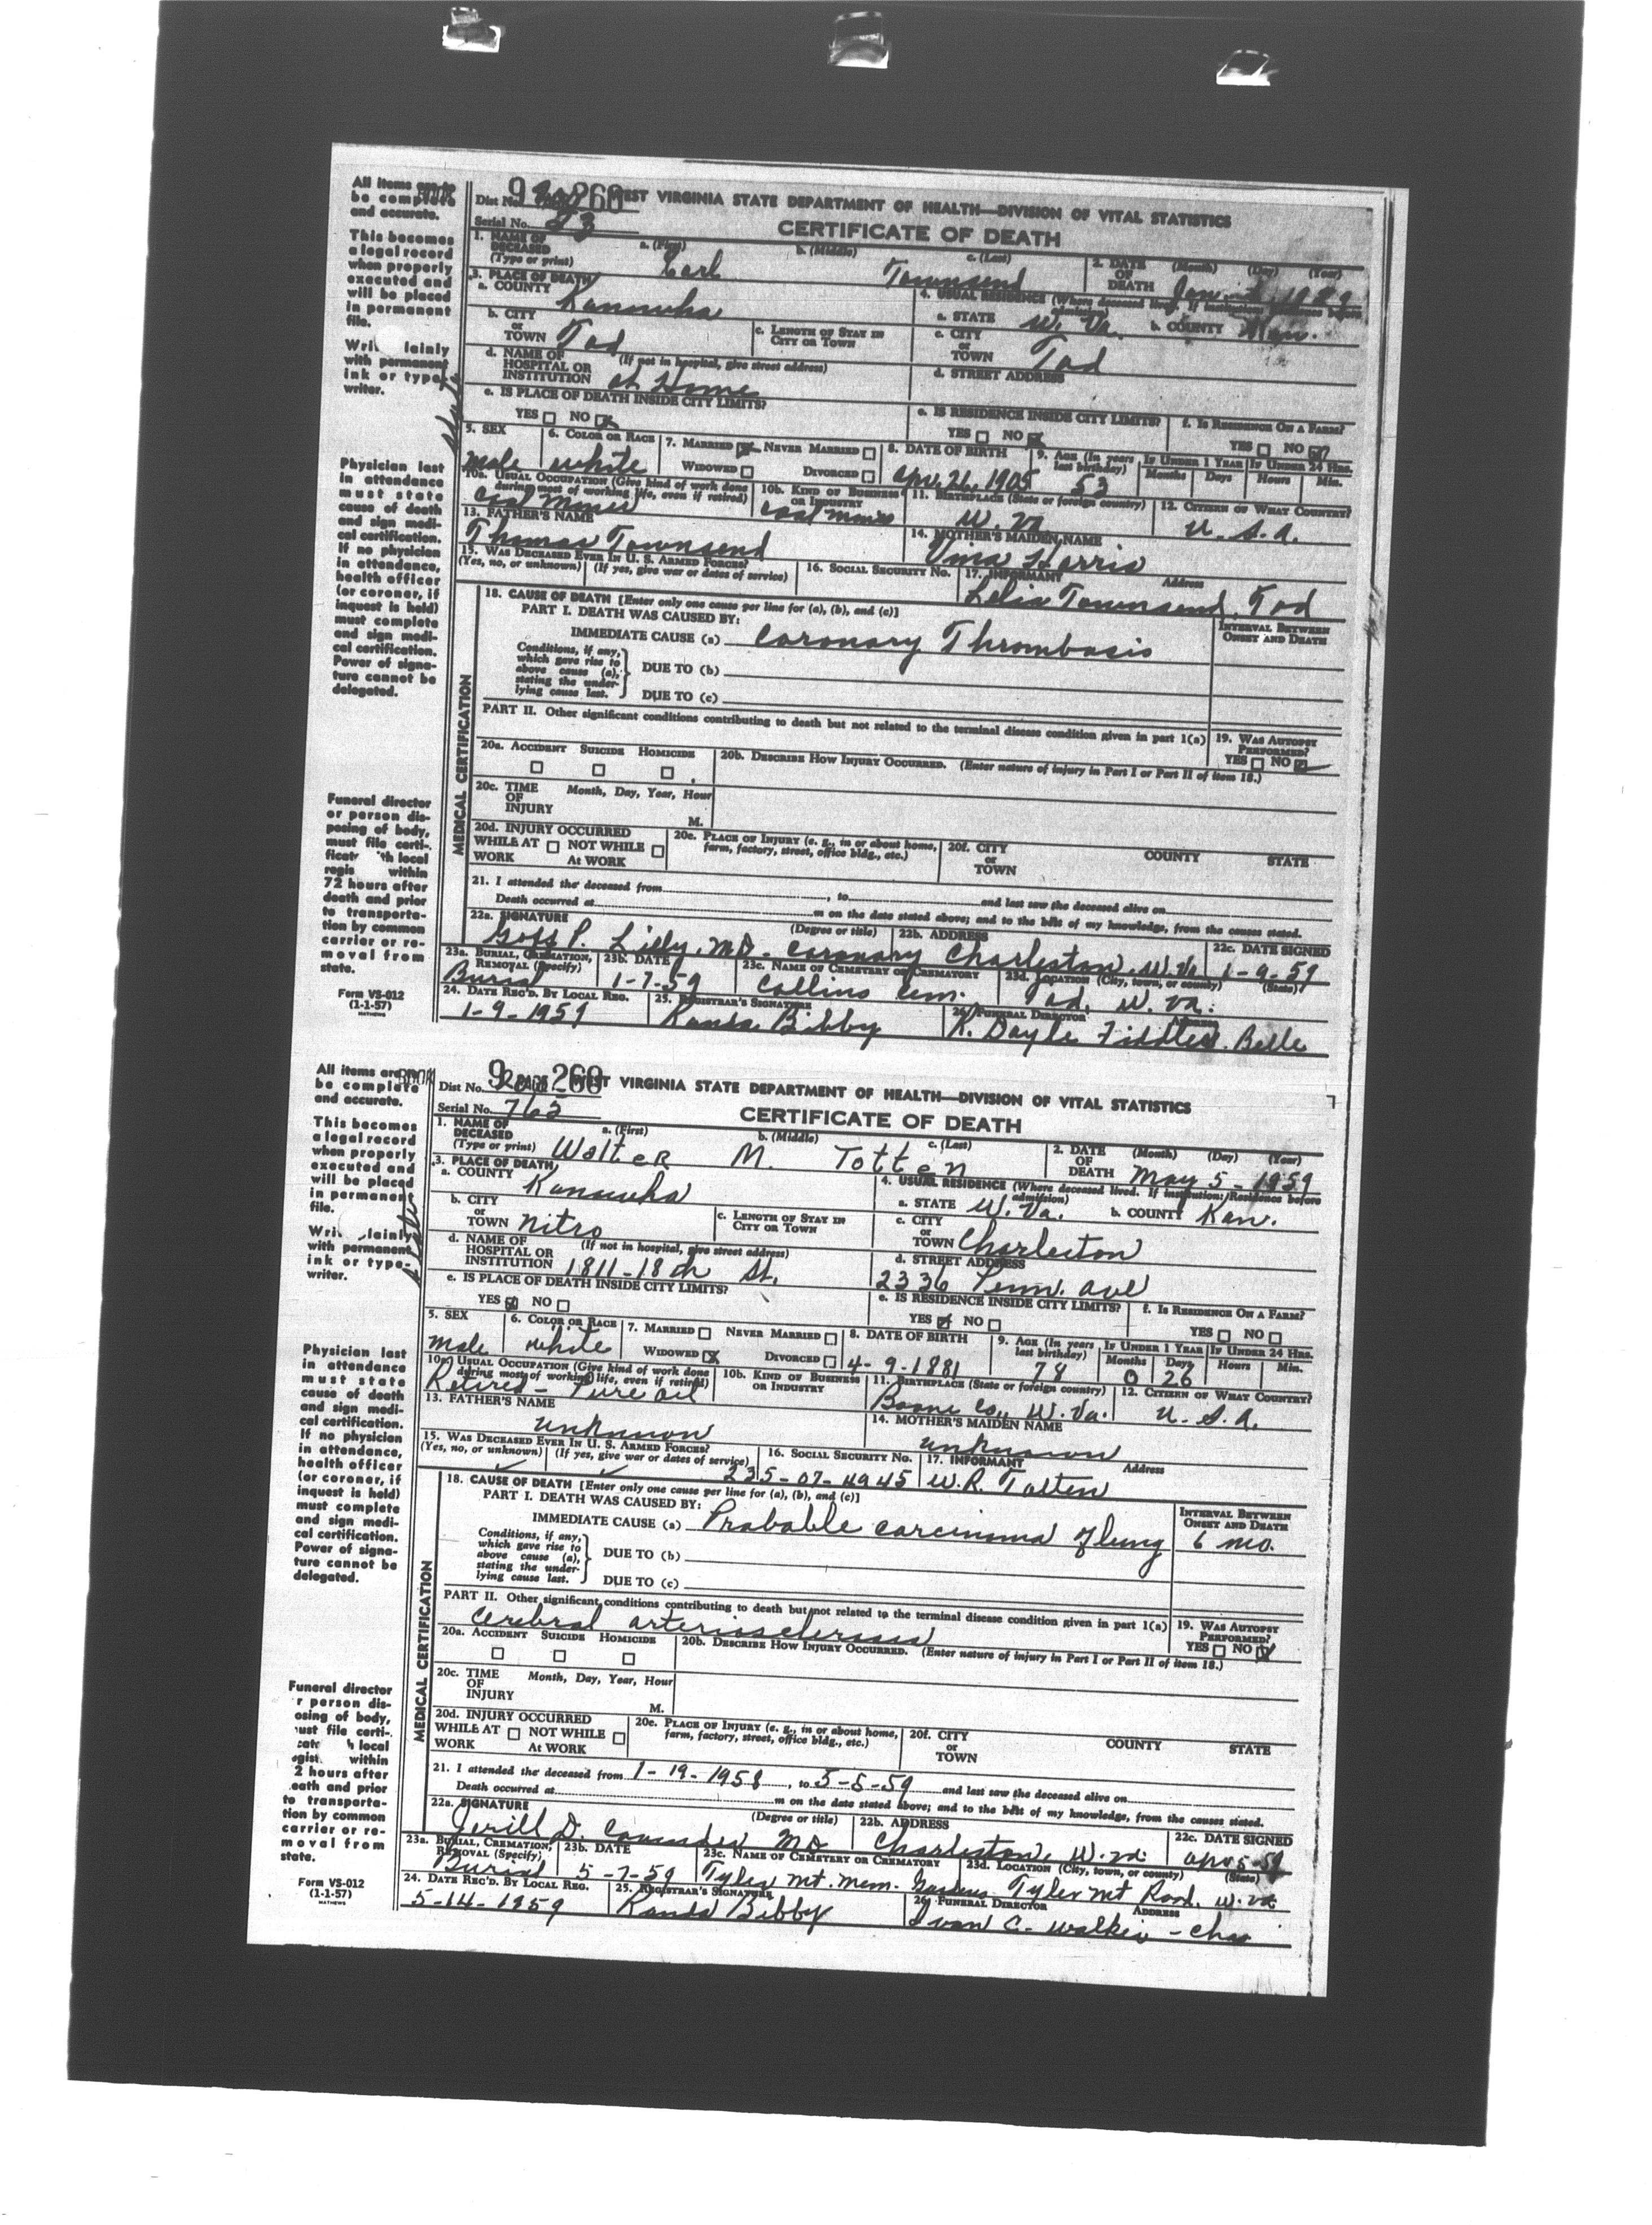 All items are to
be complete
and accurate.
This becomes
a legal record
when properly
executed and
will be placed
in permanent
file.
lainly
with permanent
ink or type-
writer.
Physician last
in attendance
must state
cause of death
and sign medi-
cal certification.
If no physician
in attendance,
health officer
(or coroner, if
inquest is held)
must complete
and sign medi-
cal certification.
Power of signa-
ture cannot be
delegated.
Funeral director
or person dis-
posing of body,
must file certi-
local
within
72 hours after
death and prior
to transporta-
tion by common
carrier or re-
moval from
state.
Form VS-012
(1-1-57)
MATHEWS
Dist No. 260 WEST VIRGINIA STATE DEPARTMENT OF HEALTH—DIVISION OF VITAL STATISTICS
Serial No. CERTIFICATE OF DEATH
1. NAME OF DECEASED (Type or print) a. (First) b. (Middle) c. (Last) Townsend
2. DATE OF DEATH (Month) (Day) (Year) Jan
3. PLACE OF DEATH a. COUNTY Kanawha
4. USUAL RESIDENCE (Where deceased lived. If institution: Residence before admission)
a. STATE W. Va. b. COUNTY Kan.
b. CITY or TOWN Tad c. LENGTH OF STAY IN CITY OR TOWN
c. CITY or TOWN Tad
d. NAME OF HOSPITAL OR INSTITUTION (If not in hospital, give street address) at Home
d. STREET ADDRESS
e. IS PLACE OF DEATH INSIDE CITY LIMITS? YES NO
e. IS RESIDENCE INSIDE CITY LIMITS? YES NO f. IS RESIDENCE ON A FARM? YES NO
5. SEX male 6. COLOR OR RACE white 7. MARRIED NEVER MARRIED WIDOWED DIVORCED
8. DATE OF BIRTH Apr. 26, 1905 9. AGE (In years last birthday) 53 IF UNDER 1 YEAR Months Days IF UNDER 24 HRS. Hours Min.
10a. USUAL OCCUPATION (Give kind of work done during most of working life, even if retired) Coal Miner
10b. KIND OF BUSINESS OR INDUSTRY coal mines 11. BIRTHPLACE (State or foreign country) W. Va. 12. CITIZEN OF WHAT COUNTRY? U. S. A.
13. FATHER'S NAME Thomas Townsend
14. MOTHER'S MAIDEN NAME Harris
15. WAS DECEASED EVER IN U. S. ARMED FORCES? (Yes, no, or unknown) (If yes, give war or dates of service)
16. SOCIAL SECURITY NO. 17. INFORMANT Address Townsend, Tad
18. CAUSE OF DEATH [Enter only one cause per line for (a), (b), and (c)]
PART I. DEATH WAS CAUSED BY: INTERVAL BETWEEN ONSET AND DEATH
IMMEDIATE CAUSE (a) Coronary Thrombosis
Conditions, if any, which gave rise to above cause (a), stating the under-lying cause last.
DUE TO (b)
DUE TO (c)
PART II. Other significant conditions contributing to death but not related to the terminal disease condition given in part 1(a)
19. WAS AUTOPSY PERFORMED? YES NO
20a. ACCIDENT SUICIDE HOMICIDE
20b. DESCRIBE HOW INJURY OCCURRED. (Enter nature of injury in Part I or Part II of item 18.)
20c. TIME OF INJURY Month, Day, Year, Hour M.
20d. INJURY OCCURRED WHILE AT WORK NOT WHILE AT WORK
20e. PLACE OF INJURY (e. g., in or about home, farm, factory, street, office bldg., etc.)
20f. CITY or TOWN COUNTY STATE
21. I attended the deceased from , to and last saw the deceased alive on
Death occurred at m on the date stated above; and to the best of my knowledge, from the causes stated.
22a. SIGNATURE (Degree or title) Goff P. Lilly, MD - 22b. ADDRESS Charleston, W. Va 22c. DATE SIGNED 1-9-59
23a. BURIAL, CREMATION, REMOVAL (Specify) Burial 23b. DATE 1-7-59 23c. NAME OF CEMETERY OR CREMATORY Collins Cem. 23d. LOCATION (City, town, or county) (State) Tad, W. Va.
24. DATE REC'D. BY LOCAL REG. 1-9-1959 25. REGISTRAR'S SIGNATURE Bibby 26. FUNERAL DIRECTOR ADDRESS K. Dayle Fidler. Belle
All items are to
be complete
and accurate.
This becomes
a legal record
when properly
executed and
will be placed
in permanent
file.
lainly
with permanent
ink or type-
writer.
Physician last
in attendance
must state
cause of death
and sign medi-
cal certification.
If no physician
in attendance,
health officer
(or coroner, if
inquest is held)
must complete
and sign medi-
cal certification.
Power of signa-
ture cannot be
delegated.
Funeral director
r person dis-
osing of body,
ust file certi-
local
within
2 hours after
eath and prior
to transporta-
tion by common
carrier or re-
moval from
state.
Form VS-012
(1-1-57)
MATHEWS
Dist No. 260 WEST VIRGINIA STATE DEPARTMENT OF HEALTH—DIVISION OF VITAL STATISTICS
Serial No. 765 CERTIFICATE OF DEATH
1. NAME OF DECEASED (Type or print) a. (First) Walter b. (Middle) M. c. (Last) Totten
2. DATE OF DEATH (Month) (Day) (Year) May 5 - 1959
3. PLACE OF DEATH a. COUNTY Kanawha
4. USUAL RESIDENCE (Where deceased lived. If institution: Residence before admission)
a. STATE W. Va. b. COUNTY Kan.
b. CITY or TOWN Nitro c. LENGTH OF STAY IN CITY OR TOWN
c. CITY or TOWN Charleston
d. NAME OF HOSPITAL OR INSTITUTION (If not in hospital, give street address) 1811-18th St.
d. STREET ADDRESS 2336 Penn. Ave
e. IS PLACE OF DEATH INSIDE CITY LIMITS? YES NO
e. IS RESIDENCE INSIDE CITY LIMITS? YES NO f. IS RESIDENCE ON A FARM? YES NO
5. SEX male 6. COLOR OR RACE white 7. MARRIED NEVER MARRIED WIDOWED DIVORCED
8. DATE OF BIRTH 4-9-1881 9. AGE (In years last birthday) 78 IF UNDER 1 YEAR Months 0 Days 26 IF UNDER 24 HRS. Hours Min.
10a. USUAL OCCUPATION (Give kind of work done during most of working life, even if retired) Retired - Pure Oil
10b. KIND OF BUSINESS OR INDUSTRY 11. BIRTHPLACE (State or foreign country) Boone Co., W. Va. 12. CITIZEN OF WHAT COUNTRY? U. S. A.
13. FATHER'S NAME unknown
14. MOTHER'S MAIDEN NAME unknown
15. WAS DECEASED EVER IN U. S. ARMED FORCES? (Yes, no, or unknown) (If yes, give war or dates of service)
16. SOCIAL SECURITY NO. 235-07-4945 17. INFORMANT Address W. R. Totten
18. CAUSE OF DEATH [Enter only one cause per line for (a), (b), and (c)]
PART I. DEATH WAS CAUSED BY: INTERVAL BETWEEN ONSET AND DEATH
IMMEDIATE CAUSE (a) Probable carcinoma of lung 6 mo.
Conditions, if any, which gave rise to above cause (a), stating the under-lying cause last.
DUE TO (b)
DUE TO (c)
PART II. Other significant conditions contributing to death but not related to the terminal disease condition given in part 1(a)
Cerebral arteriosclerosis
19. WAS AUTOPSY PERFORMED? YES NO
20a. ACCIDENT SUICIDE HOMICIDE
20b. DESCRIBE HOW INJURY OCCURRED. (Enter nature of injury in Part I or Part II of item 18.)
20c. TIME OF INJURY Month, Day, Year, Hour M.
20d. INJURY OCCURRED WHILE AT WORK NOT WHILE AT WORK
20e. PLACE OF INJURY (e. g., in or about home, farm, factory, street, office bldg., etc.)
20f. CITY or TOWN COUNTY STATE
21. I attended the deceased from 1-19-1958, to 5-5-59 and last saw the deceased alive on
Death occurred at m on the date stated above; and to the best of my knowledge, from the causes stated.
22a. SIGNATURE (Degree or title) D. MD 22b. ADDRESS Charleston, W. Va. 22c. DATE SIGNED
23a. BURIAL, CREMATION, REMOVAL (Specify) Burial 23b. DATE 5-7-59 23c. NAME OF CEMETERY OR CREMATORY Tyler Mt. Mem. Gardens 23d. LOCATION (City, town, or county) (State) Tyler Mt Road, W. Va
24. DATE REC'D. BY LOCAL REG. 5-14-1959 25. REGISTRAR'S SIGNATURE Bibby 26. FUNERAL DIRECTOR ADDRESS Ivan C. - Chas